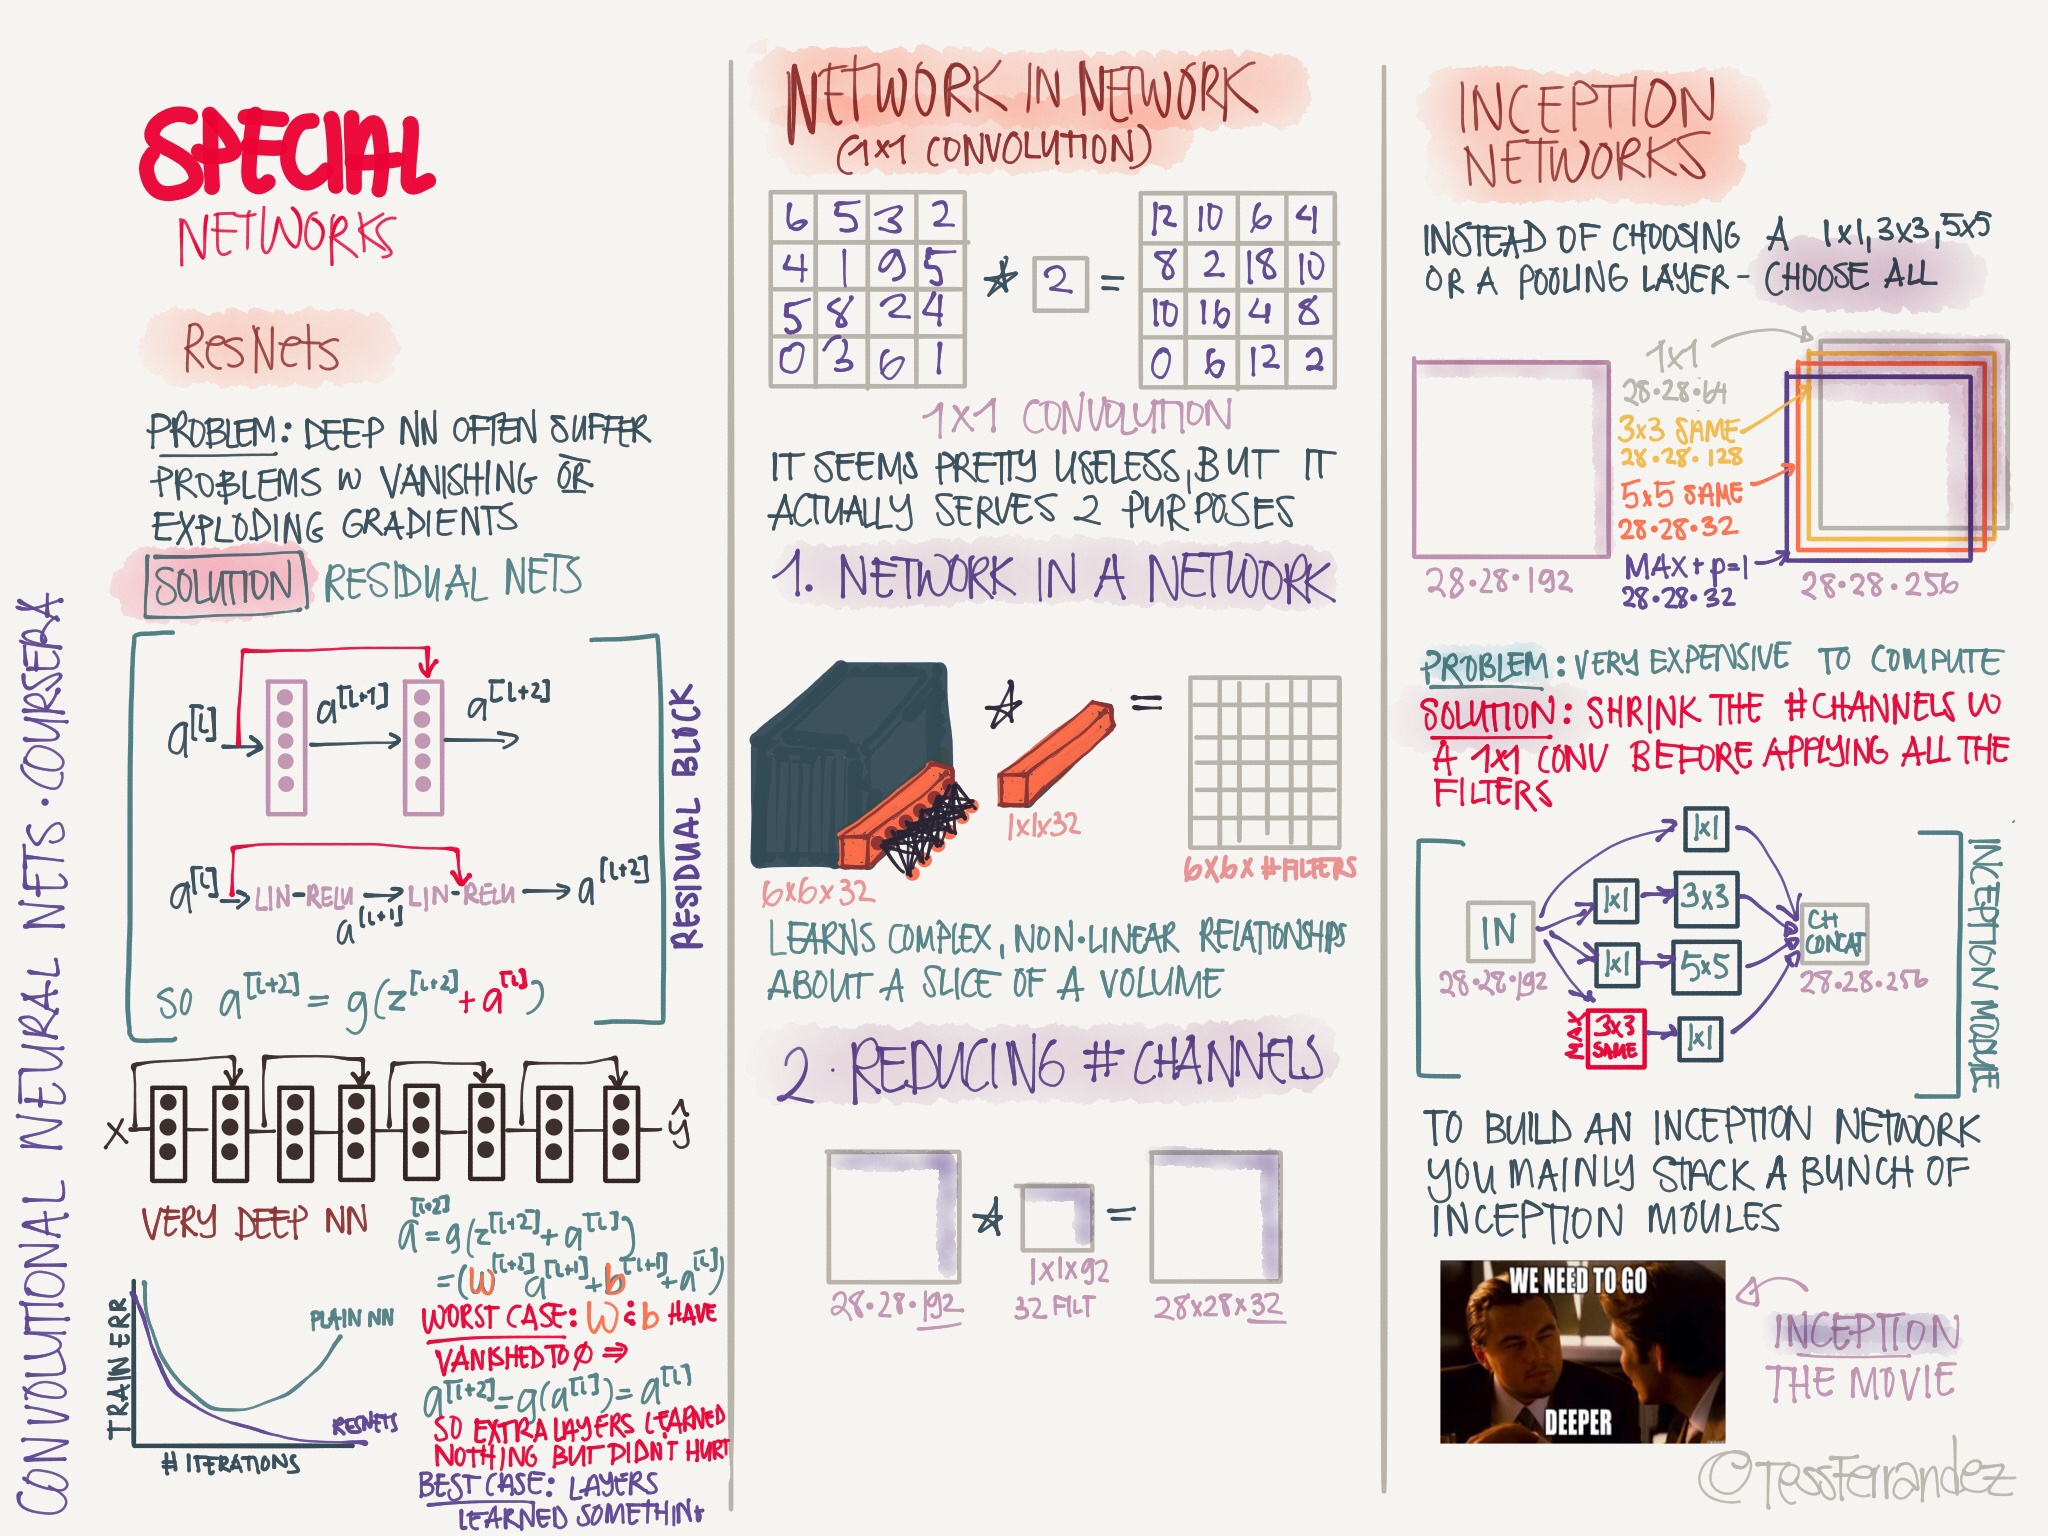 CONVOLUTIONAL NEURAL NETS · COURSERA
SPECIAL
NETWORKS
ResNets
PROBLEM: DEEP NN OFTEN SUFFER
PROBLEMS W VANISHING OR
EXPLODING GRADIENTS
SOLUTION RESIDUAL NETS
a[l] a[l+1] a[l+2]
a[l] LIN-RELU LIN-RELU a[l+2]
a[l+1]
SO a[l+2] = g(z[l+2] + a[l])
RESIDUAL BLOCK
X ŷ
VERY DEEP NN
a[l+2] = g(z[l+2] + a[l])
= (W[l+2] a[l+1] + b[l+1] + a[l])
WORST CASE: W & b HAVE
VANISHED TO Ø ⇒
a[l+2] = g(a[l]) = a[l]
SO EXTRA LAYERS LEARNED
NOTHING BUT DIDN'T HURT
BEST CASE: LAYERS
LEARNED SOMETHING
TRAIN ERR
PLAIN NN
RESNETS
# ITERATIONS
NETWORK IN NETWORK
(1x1 CONVOLUTION)
6 5 3 2 12 10 6 4
4 1 9 5 * 2 = 8 2 18 10
5 8 2 4 10 16 4 8
0 3 6 1 0 6 12 2
1x1 CONVOLUTION
IT SEEMS PRETTY USELESS, BUT IT
ACTUALLY SERVES 2 PURPOSES
1. NETWORK IN A NETWORK
* =
1x1x32
6x6x32
6x6x #FILTERS
LEARNS COMPLEX, NON-LINEAR RELATIONSHIPS
ABOUT A SLICE OF A VOLUME
2. REDUCING # CHANNELS
* =
1x1x92
28·28·192 32 FILT 28x28x32
INCEPTION
NETWORKS
INSTEAD OF CHOOSING A 1x1, 3x3, 5x5
OR A POOLING LAYER - CHOOSE ALL
1x1
28·28·64
3x3 SAME
28·28·128
5x5 SAME
28·28·32
MAX + p=1
28·28·32
28·28·192
28·28·256
PROBLEM: VERY EXPENSIVE TO COMPUTE
SOLUTION: SHRINK THE #CHANNELS W
A 1x1 CONV BEFORE APPLYING ALL THE
FILTERS
1x1
1x1 3x3
IN
CH
CONCAT
1x1 5x5
28·28·192
28·28·256
MAX 3x3
SAME
1x1
INCEPTION MODULE
TO BUILD AN INCEPTION NETWORK
YOU MAINLY STACK A BUNCH OF
INCEPTION MOULES
WE NEED TO GO
DEEPER
INCEPTION
THE MOVIE
©TessFerrandez